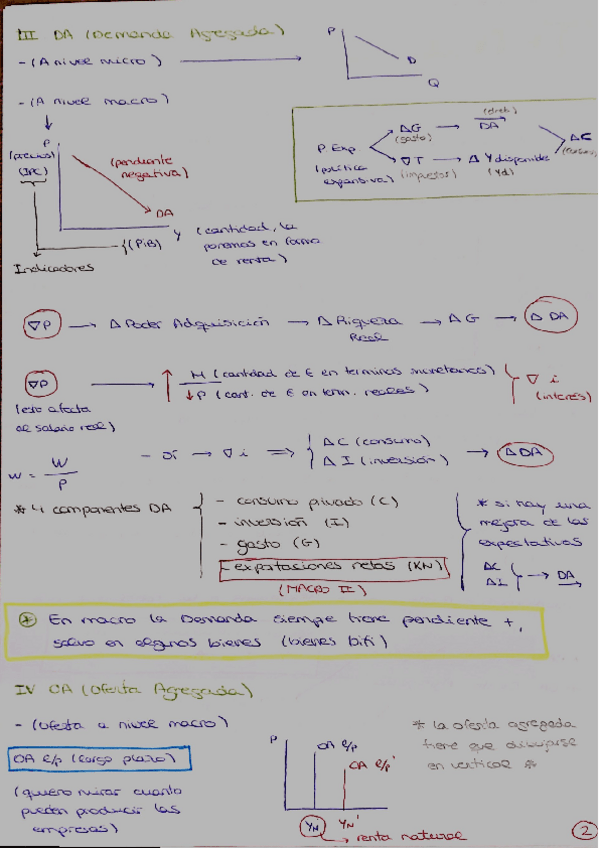 III DA (Demanda Agregada)
- (A nivel micro)
P
D
Q
- (A nivel macro)
P
(precios)
(IPC)
(pendiente negativa)
DA
Y (cantidad, la
ponemos en forma
de renta)
(PIB)
Indicadores
P Exp
(política
expansiva)
ΔG
(gasto)
DA
∇T
(impuestos)
Δ Y disponible
(Yd)
ΔC
(consumo)
∇P → Δ Poder Adquisición → Δ Riqueza Real → ΔG → Δ DA
∇P
(esto afecta
al salario real)
↑ M (cantidad de € en terminos monetarios)
↓ P (cant. de € en term. reales)
∇ i
(interés)
w = W/P
- Si → ∇ i ⇒ ΔC (consumo)
ΔI (inversión)
→ ΔDA
* 4 componentes DA
- consumo privado (C)
- inversión (I)
- gasto (G)
- exportaciones netas (XN)
(MACRO II)
* si hay una
mejora de las
expectativas
ΔC
ΔI
→ DA
* En macro la Demanda siempre tiene pendiente +,
salvo en algunos bienes (bienes bifi)
IV OA (Oferta Agregada)
- (Oferta a nivel macro)
OA e/p (largo plazo)
(quiero mirar cuanto
pueden producir las
empresas)
P
OA e/p
OA e/p'
YN
YN'
renta natural
* la oferta agregada
tiene que dibujarse
en vertical *
2